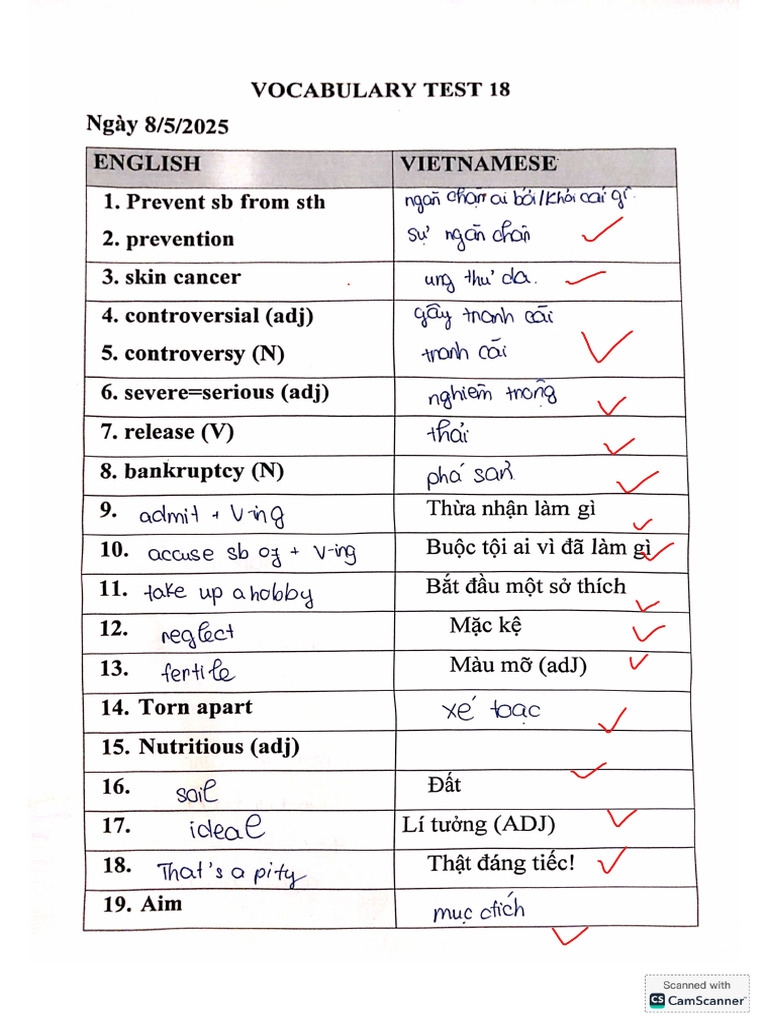 VOCABULARY TEST 18
Ngày 8/5/2025
ENGLISH VIETNAMESE
1. Prevent sb from sth ngăn chặn ai bởi/khỏi cái gì.
2. prevention sự ngăn chặn
3. skin cancer ung thư da.
4. controversial (adj) gây tranh cãi
5. controversy (N) tranh cãi
6. severe=serious (adj) nghiêm trọng
7. release (V) thải
8. bankruptcy (N) phá sản
9. admit + V-ing Thừa nhận làm gì
10. accuse sb of + V-ing Buộc tội ai vì đã làm gì
11. take up a hobby Bắt đầu một sở thích
12. neglect Mặc kệ
13. fertile Màu mỡ (adJ)
14. Torn apart xé toạc
15. Nutritious (adj)
16. soil Đất
17. ideal Lí tưởng (ADJ)
18. That's a pity Thật đáng tiếc!
19. Aim mục đích
Scanned with
CS CamScanner